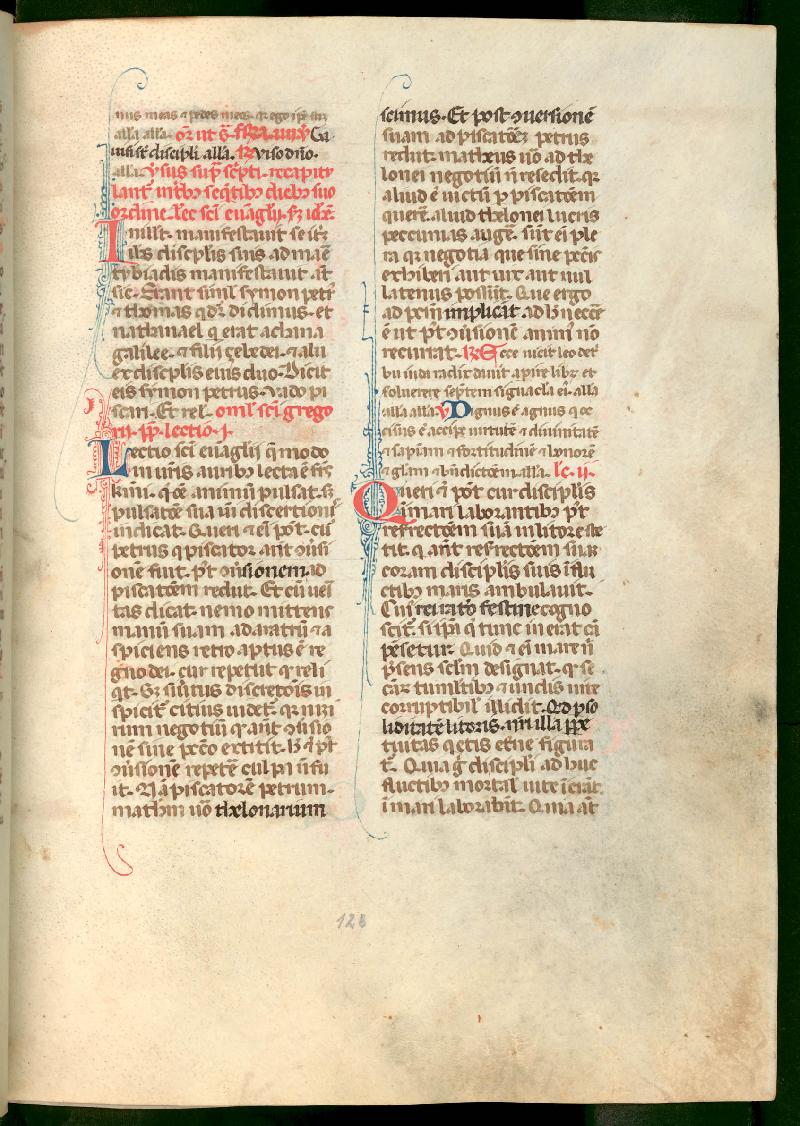 nus meas ⁊ pedes meos. qr ego ip̅e su̅
alla alla. or̅ ut s̅. Ga
uisi st̅ discipli alla. ℟ viso dn̅o.
alla. ℣sus sup̅ sc̅pti. recapitu
lant̅ in tb̅ꝫ seq̅tibꝫ diebꝫ suo
ordine. lec̅ sc̅i eua̅glij. s̅ꝫ ioh̅e̅
In illt̅. manifestauit se it̅ꝫ
ih̅s discip̅lis suis ad mar̅e
tybiadis manifestauit at̅
sic. Erant simł symon petrꝰ
⁊ thomas qd̅r didimus. et
nathanael q erat a chana
galilee. ⁊ filij zebedei. ⁊ alij
ex discip̅lis eius duo. Dicit
eis symon petrus. Vado pi
scari. Et rel̅. omł sc̅i grego
rij. pp̅. lectio .i.
Lectio sc̅i eua̅glij q̅ modo
in ur̅is auribꝫ lecta e̅ fr̅s
kmi. q̅oe̅ animu̅ pulsat. sꝫ
pulsac̅oe̅ sua i̅ discertioni̅
indicat. Q̅ueri ⁊ en̅ pot̅. cu̅
petrus q piscator an̅t ꝯu̅si
one̅ fuit. p̅t ꝯu̅sionem ad
piscato̅em redut. Et cu̅ ueri̅
tas dicat. nemo mittens
manu̅ suam ad aratru̅ ⁊ a
spiciens retro aptus e̅ re
gno dei. cur repetut qr reli
qt̅. Sꝫ si u̅tus discreto̅is in
spicit̅ citius uidet̅. qr nꝫi
rum negotiu̅ q̅ an̅t ꝯu̅sio
ne̅ sine pc̅co extitit. h̅ ⁊ p̅t
ꝯu̅sione̅ repete̅ culpa n̅ fu
it. Na̅ piscatore̅ petrum.
mathm̅ uo̅ thelonarium
scimus. Et post ꝯuersione̅
suam ad piscatoe̅ꝫ petrus
rediit. matheus uo̅ ad the
lonei negotiu̅ n̅ resedit. qr
aliud e̅ uictu̅ p piscato̅em
quere̅. aliud thelonei lucris
peccunias auge̅. Sut̅ ei̅ ple
ra q̅ negotia que sine pc̅cis
exhiberi aut uix aut nul
latenus possu̅t. Que ergo
ad pc̅m implicat̅ ad h̅ nece̅e̅
e̅ ut p̅t ꝯu̅sione̅ anim̅ no̅
recurrat. ℟ Ecce uicit leo de t̅
bu iuda radix dauit apire libꝫ et
soluere septem signacl̅a ei̅. alla
alla alla. ℣ Dignus e̅ agnus q oc
cisus e̅ accipe uirtute̅ ⁊ diuinitate̅
⁊ sapi̅am ⁊ fortitudine̅ ⁊ honore̅
⁊ gl̅am ⁊ bn̅dicto̅em alla. lc̅. ij.
Q̅ueri ⁊ pot̅ cur discip̅lis
i̅ mari laborantibꝫ p̅t
resrecto̅em sua̅ in litore ste
tit. q an̅t resrecto̅em sua̅
coram discip̅lis suis i̅ flu
ctibꝫ maris ambulauit.
Cuiꝰ rei rato̅ festine cogno
scit̅. si ip̅a q tunc inerat ca̅
pe̅setur. Quid ⁊ en̅ mare n̅
p̅sens sclm̅ designat. qr se
car̅ tumltibꝫ ⁊ undis uite
corruptibil̅ illidit̅. Qd̅ p so
liditate̅ litoris. n̅i illa pp̅e
tuitas qetis et̅ne figura
t̅. Quia g̅ discip̅li adhuc
fluctibꝫ mortal̅ uite i̅era̅t
i̅ mari laborabn̅t. Quia at̅
128